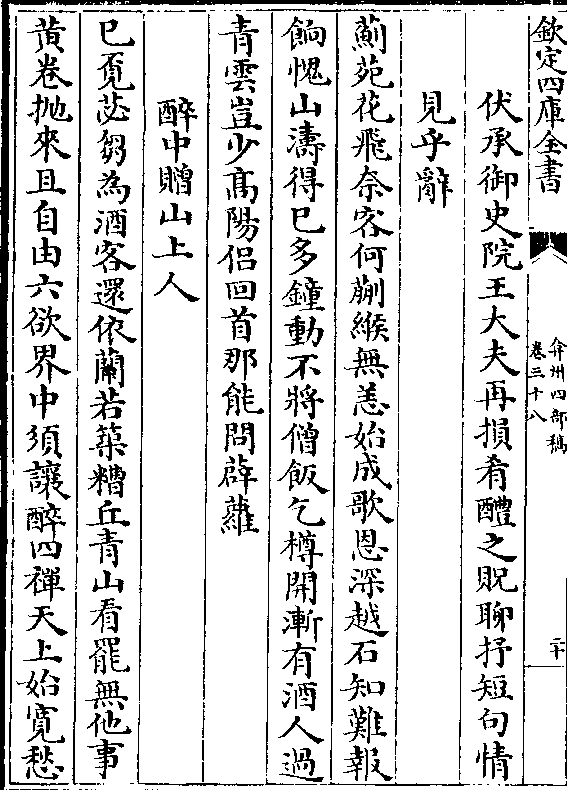 欽定四庫全書
弇州四部稿
卷三十八
二十
伏承御史院王大夫再損肴醴之貺聊抒短句情
見乎辭
薊苑花飛奈客何蒯緱無恙始成歌恩深越石知難報
餉愧山濤得巳多鐘動不將僧飯乞樽開漸有酒人過
青雲豈少高陽侣回首那能問薜蘿
醉中贈山上人
巳覓苾芻為酒客還依蘭若築糟丘青山看罷無他事
黄卷抛來且自由六欲界中須讓醉四禪天上始寛愁